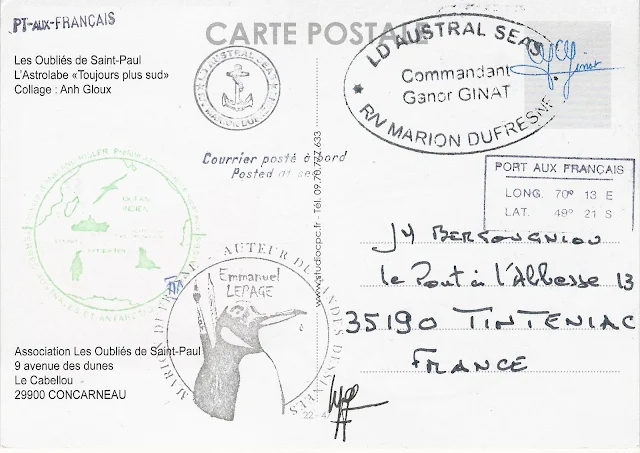 PT-AUX-FRANCAIS
CARTE POSTALE
Les Oubliés de Saint-Paul
L'Astrolabe «Toujours plus sud»
Collage : Anh Gloux
LD AUSTRAL SEAS
Commandant
Ganor GINAT
R/V MARION DUFRESNE
Courrier posté à bord
Posted at sea
PORT AUX FRANCAIS
LONG. 70° 13 E
LAT. 49° 21 S
www.studiocpc.fr - Tél.
OCEAN
INDIEN
AUTEUR DE BANDES DESSINÉES
MARION DUFRESNE
Emmanuel
LEPAGE
JM BERTOUGNIOU
le Pont à l'Abbesse 13
35190 TINTENIAC
FRANCE
Association Les Oubliés de Saint-Paul
9 avenue des dunes
Le Cabellou
29900 CONCARNEAU